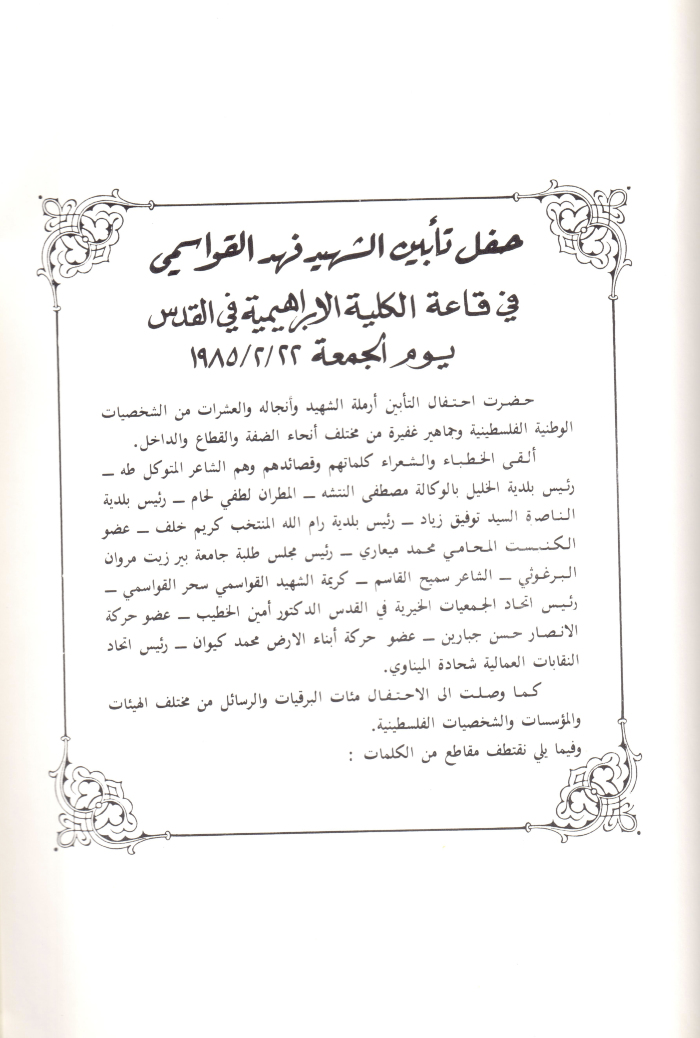 حفل تأبين الشهيد فهد القواسمي
في قاعة الكلية الابراهيمية في القدس
يوم الجمعة ١٩٨٥/٢/٢٢
حضرت احتفال التأبين أرملة الشهيد وأنجاله والعشرات من الشخصيات
الوطنية الفلسطينية وجماهير غفيرة من مختلف أنحاء الضفة والقطاع والداخل.
ألقى الخطباء والشعراء كلماتهم وقصائدهم وهم الشاعر المتوكل طه ــ
رئيس بلدية الخليل بالوكالة مصطفى النتشه ــ المطران لطفي لحام ــ رئيس بلدية
الناصرة السيد توفيق زياد ــ رئيس بلدية رام الله المنتخب كريم خلف ــ عضو
الكنست المحامي محمد ميعاري ــ رئيس مجلس طلبة جامعة بير زيت مروان
البرغوثي ــ الشاعر سميح القاسم ــ كريمة الشهيد القواسمي سحر القواسمي ــ
رئيس اتحاد الجمعيات الخيرية في القدس الدكتور أمين الخطيب ــ عضو حركة
الانصار حسن جبارين ــ عضو حركة أبناء الارض محمد كيوان ــ رئيس اتحاد
النقابات العمالية شحادة الميناوي.
كما وصلت الى الاحتفال مئات البرقيات والرسائل من مختلف الهيئات
والمؤسسات والشخصيات الفلسطينية.
وفيما يلي نقتطف مقاطع من الكلمات :